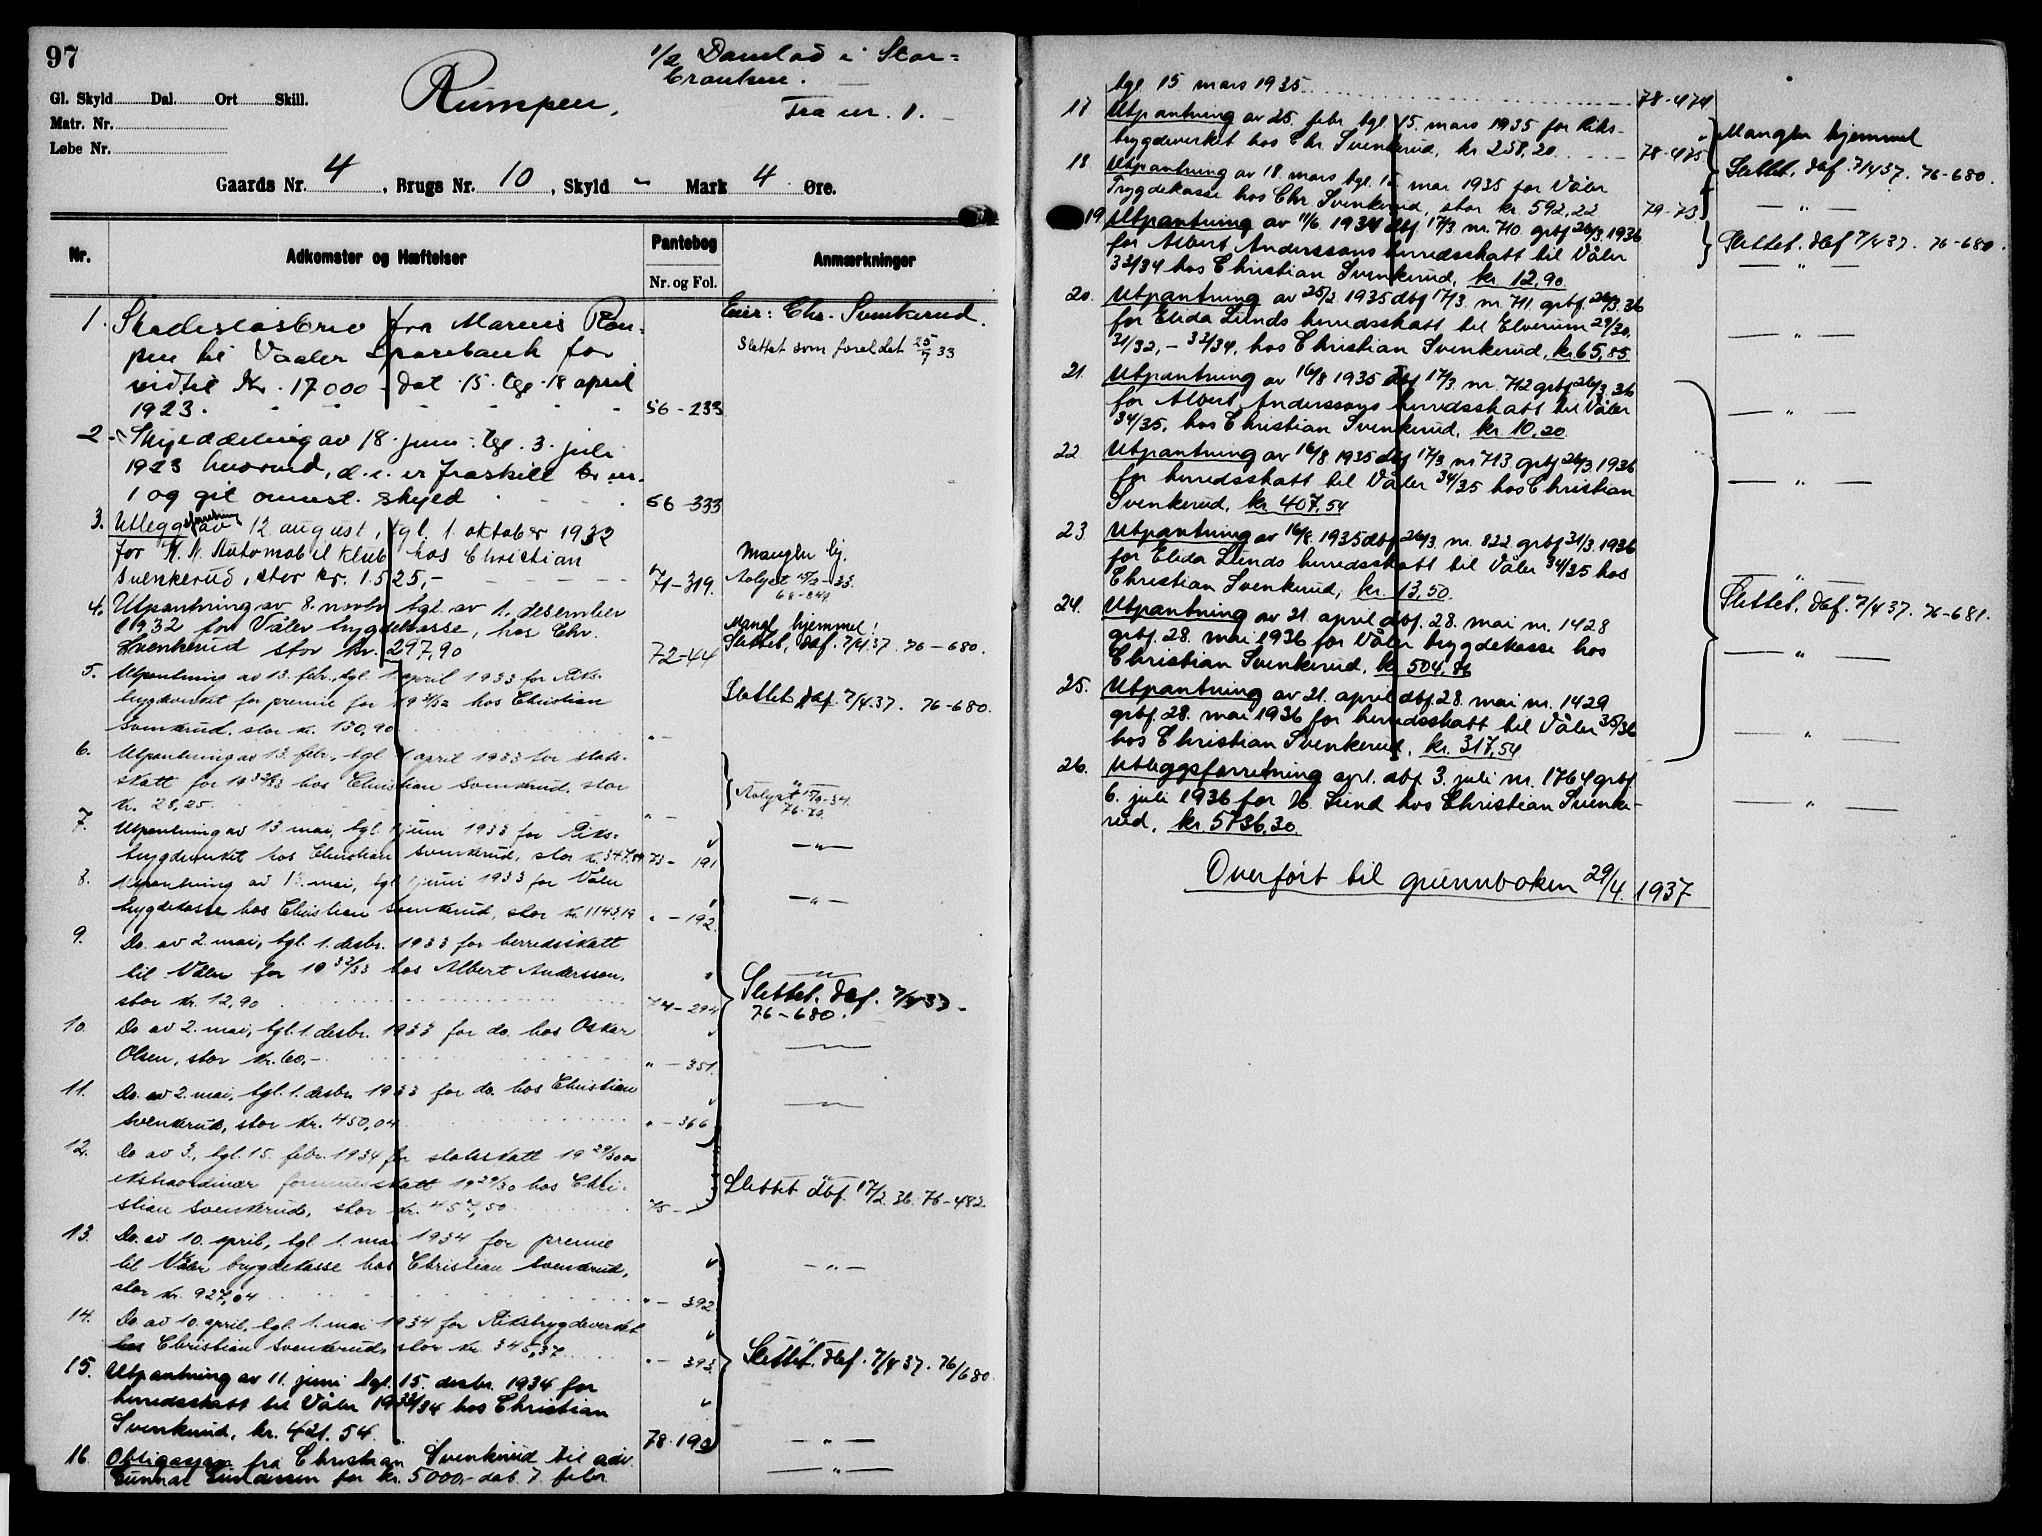 97
1/2 Damlad i Stor-
Rumpen,
Fra nr. 1.
Gl. Skyld Dal. Ort Skill.
Matr. Nr.
Løbe Nr.
Gaards Nr. 4, Brugs Nr. 10, Skyld " Mark 4 Øre.
Nr. Adkomster og Hæftelser Pantebog Nr. og Fol. Anmærkninger
Eier: Chr. Svenkerud.
1. Skadesløsbrev fra Marius Ram-
pen til Vaaler Sparebank for
indtil Kr. 17000 dat. 15. tgl. 18 april
1923. 56-233
Slettet som foreldet 25/9 33
2. Skylddeling av 18. juni tgl. 3. juli
1923 hvorved, d. e. er fraskilt br. nr.
1 og git anmst. skyld 56-333
3. Utleggsforretning av 12 august, tgl. 1. oktober 1932
for K. N. Automobil klub hos Christian
Svenkerud, stor kr. 1.525,- 71-319.
Mangler hj.
Avlyst 15/2-33.
4. Utpantning av 8. novbr. tgl. av 1. desember
1932 for Våler trygdekasse, hos Chr.
Svenkerud stor kr. 297,90 72-44
Mangl. hjemmel!
Slettet, dbf. 7/4 37. 76-680.
5. Utpantning av 13. febr., tgl. 1. april 1933 for Riks-
trygdeverket for premie for 1931/32 hos Christian
Svenkerud, stor kr. 150,90 " -
Slettet dbf. 7/4.37. 76-680.
6. Utpantning av 13. febr., tgl. 1 april 1933 for stats-
skatt for 1932/33 hos Christian Svenkerud, stor
kr. 28,25 " -
Avlyst 15/9-34.
76-70.
7. Utpantning av 13 mai, tgl. 1 juni 1933 for Riks-
trygdeverket hos Christian Svenkerud, stor kr. 347,84 73-191
- " -
8. Utpantning av 13. mai, tgl. 1 juni 1933 for Våler
trygdekasse hos Christian Svenkerud, stor kr. 1143,19 " -192
- " -
9. Do. av 2. mai, tgl. 1. desbr. 1933 for herredsskatt
til Våler for 1932/33 hos Albert Andersson,
stor kr. 12,90 74-294
- " -
Slettet. dbf. 7/4 37.
76-680.
10. Do av 2. mai, tgl. 1. desbr. 1933 for do. hos Oskar
Olsen, stor kr. 60,- " -351.
- " -
11. Do. av 2. mai, tgl. 1. desbr. 1933 for do. hos Christian
Svenkerud, stor kr. 450,04 " -366
- " -
12. Do av 3., tgl. 15. febr. 1934 for statsskatt 1929/30 og
ekstraordinær formuesskatt 1929/30 hos Chri-
stian Svenkerud, stor kr. 457,50 75-
Slettet dbf. 17/2. 36. 76-482.
13. Do. av 10. april, tgl. 1. mai 1934 for premie
til Våler trygdekasse hos Christian Svenkerud,
stor kr. 927,04 " - 392
- " -
14. Do av 10. april, tgl. 1. mai 1934 for Rikstrygdeverket
hos Christian Svenkerud, stor kr. 345,37 " - 393.
- " -
Slettet. dbf. 7/4 37. 76/680.
15. Utpantning av 11. juni tgl. 15. desbr. 1934 for
herredsskatt til Våler 1933/34 hos Christian
Svenkerud, kr. 421.54. 78.190
- " -
16. Obligasjon fra Christian Svenkerud til adv.
Gunnar Gundersen for kr. 5000,- dat. 7. febr.
- " -
tgl. 15 mars 1935. 78-474
17 Utpantning av 25. febr. tgl. 15. mars 1935 for Riks-
trygdeverket hos Chr. Svenkerud, kr 258,20 78-475
Mangler hjemmel
Slettet. dbf. 7/4 37. 76-680.
18 Utpantning av 18. mars tgl. 15 mar. 1935 for Våler
Trygdekasse hos Chr Svenkerud, stor kr. 592,22 79-73
- " -
19. Utpantning av 11/6 1934 dbf. 17/3 nr. 710 grbf 26/3.1936
for Albert Anderssons herredsskatt til Våler
33/34 hos Christian Svenkerud, kr. 12,90.
Slettet. dbf 7/4 37. 76-680.
- " -
20. Utpantning av 25/2 1935 dbf 17/3. nr. 711. grbf. 26/3.36
for Elida Lunds herredsskatt til Elverum 29/30,
31/32, - 33/34, hos Christian Svenkerud, kr 65,85
- " -
21. Utpantning av 16/8 1935 dbf 17/3. nr. 712 grbf 26/3 36
for Albert Anderssons herredsskatt til Våler
34/35. hos Christian Svenkerud, kr. 10,20
- " -
22. Utpantning av 16/8 1935 dbf 17/3 nr 713. grbf 26/3 1936
for herredsskatt til Våler 34/35 hos Christian
Svenkerud, kr 407,54
- " -
23. Utpantning av 16/8. 1935 dbf 26/3. nr. 822 grbf 31/3.1936
for Elida Lunds herredsskatt til Våler 34/35 hos
Christian Svenkerud, kr. 13,50.
- " -
Slettet. dbf. 7/4 37. 76-681.
24. Utpantning av 21. april dbf. 28. mai nr. 1428
grbf. 28. mai 1936 for Våler trygdekasse hos
Christian Svenkerud. kr 504,86
- " -
25. Utpantning av 21. april dbf. 28. mai nr. 1429
grbf. 28. mai 1936 for herredsskatt til Våler 35/36
hos Christian Svenkerud, kr. 317,54
- " -
26. Utleggsforretning dbf. 3. juli nr. 1764 grbf.
6. juli 1936 for H. Lund hos Christian Svenke-
rud, kr. 5736,30
- " -
Overført til grunnboken 29/4. 1937